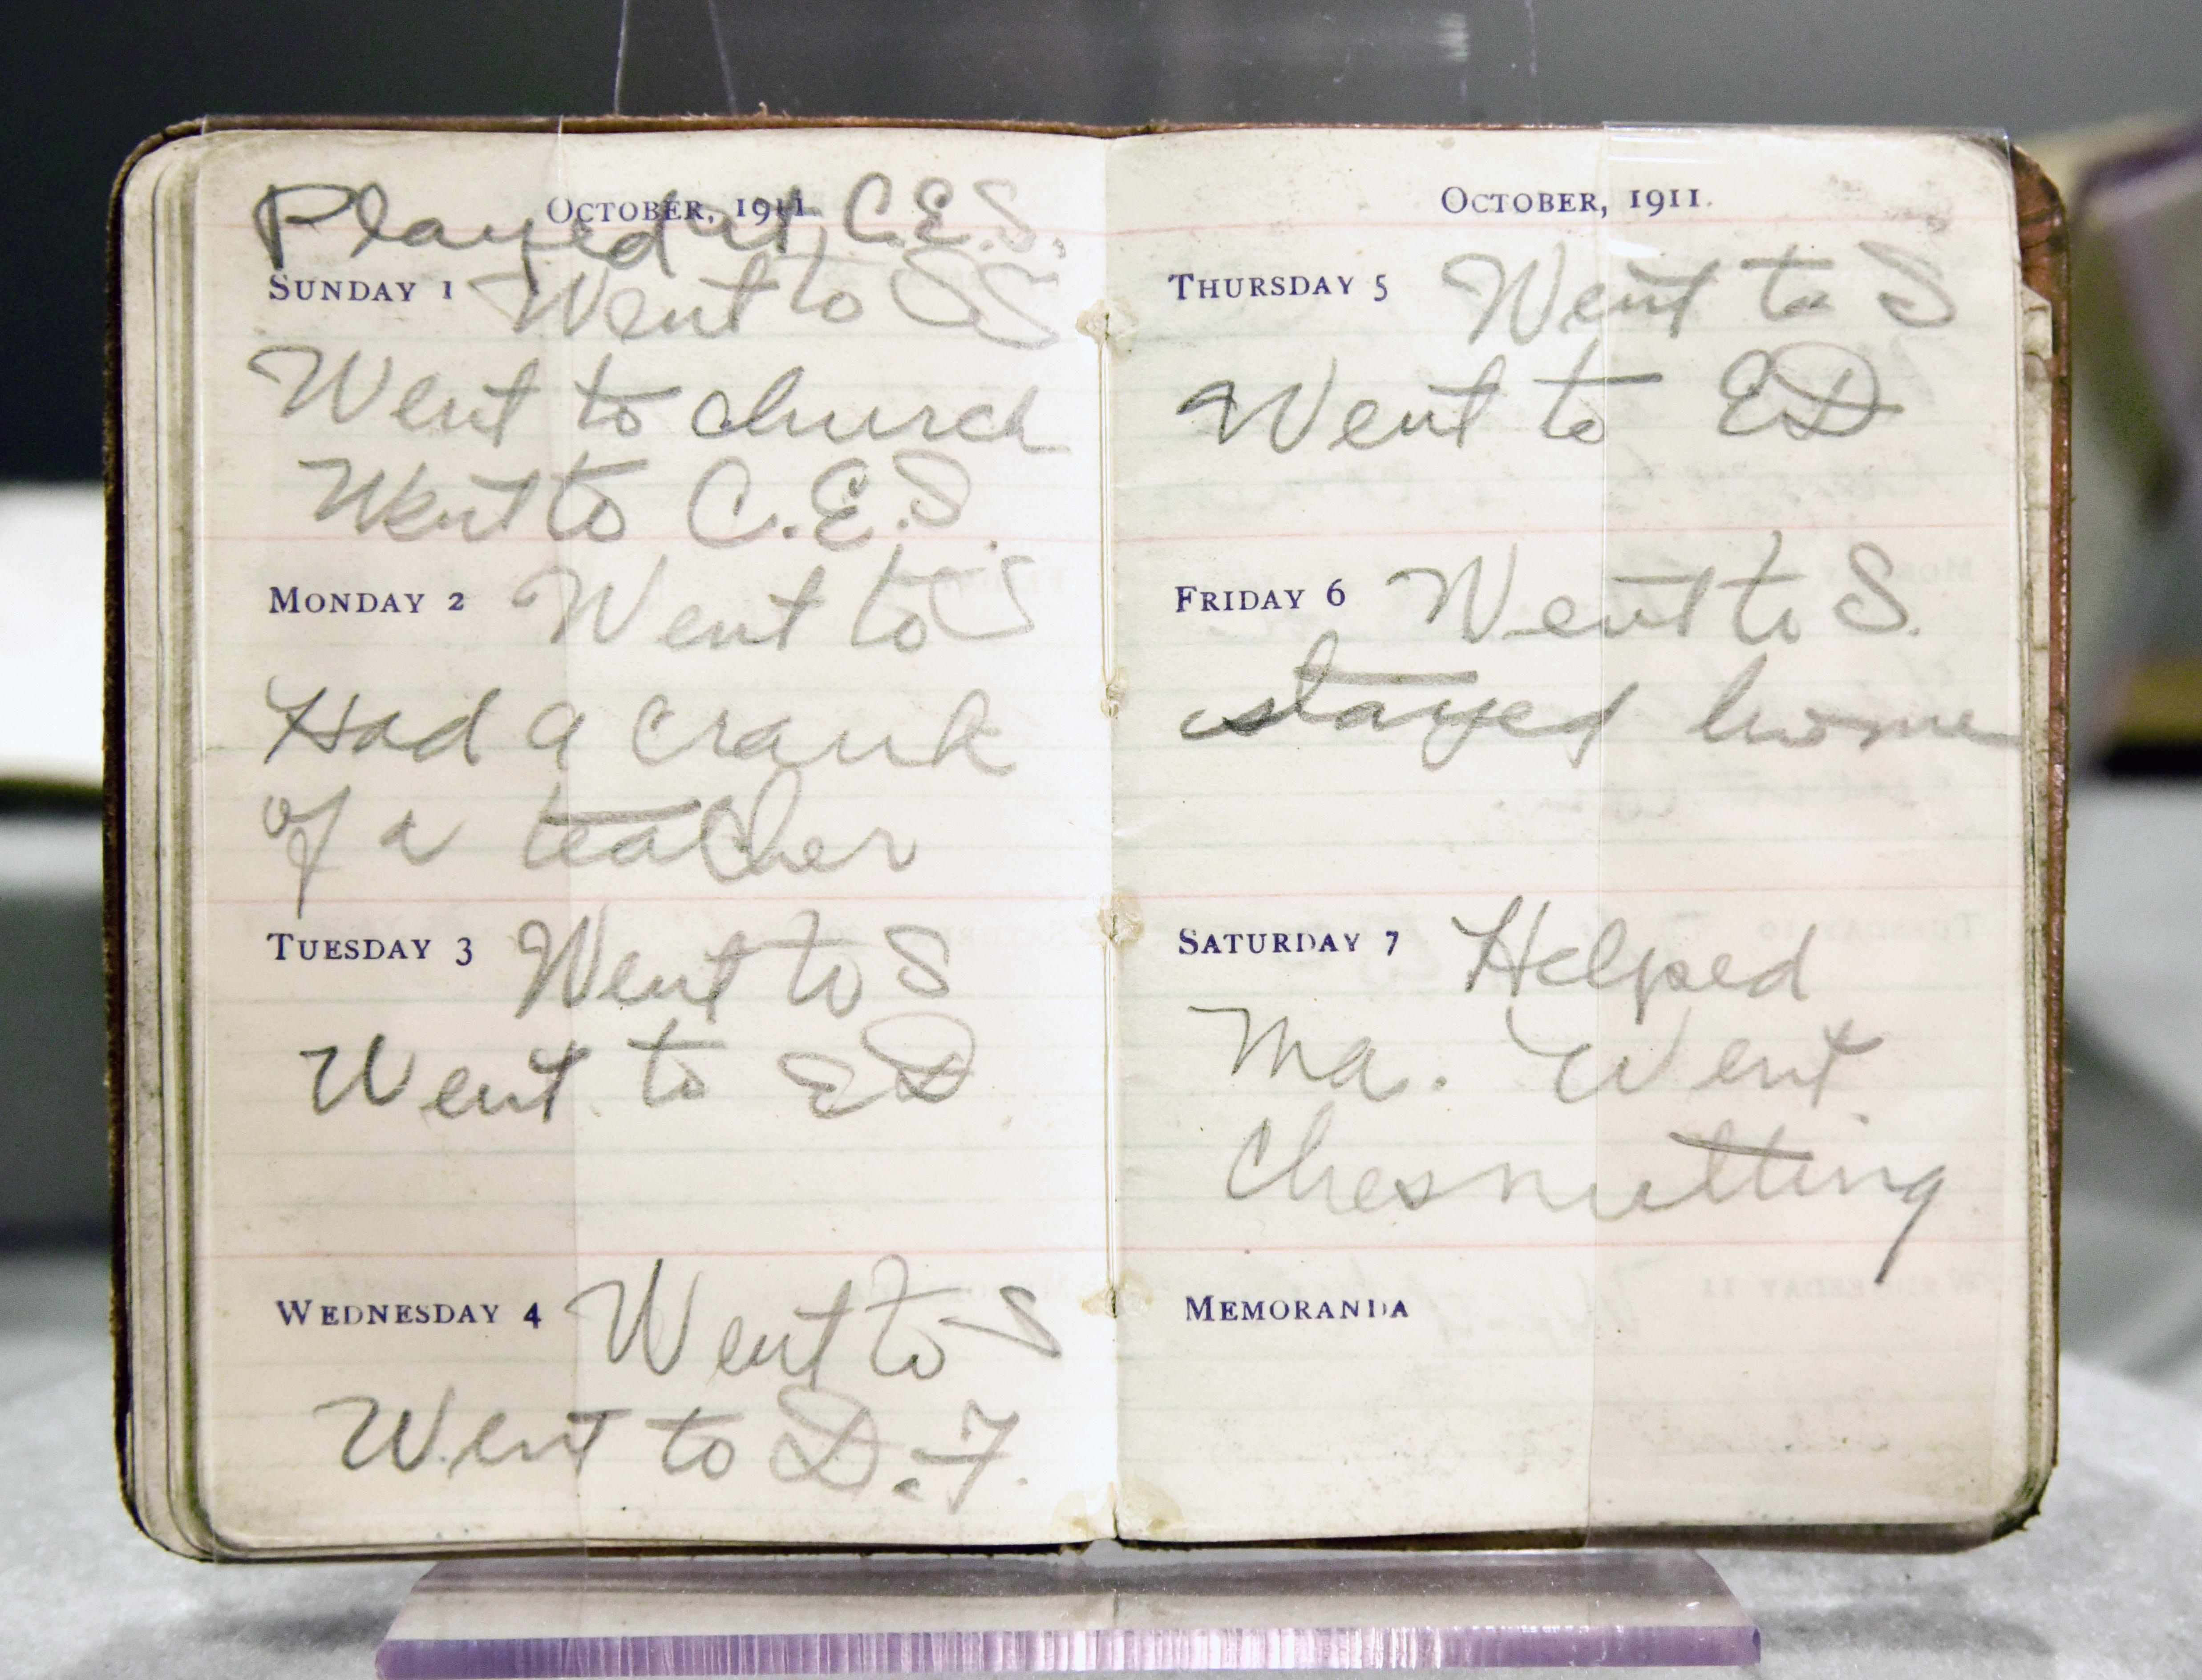 October, 1911.
Played at C.E.S.
Sunday 1 Went to SS
Went to church
Went to C.E.S.
Monday 2 Went to S
Had a crank
of a teacher
Tuesday 3 Went to S
Went to ED
Wednesday 4 Went to S
Went to D.F.
October, 1911.
Thursday 5 Went to S
Went to ED
Friday 6 Went to S.
stayed home
Saturday 7 Helped
Ma. Went
Chesnutting
Memoranda